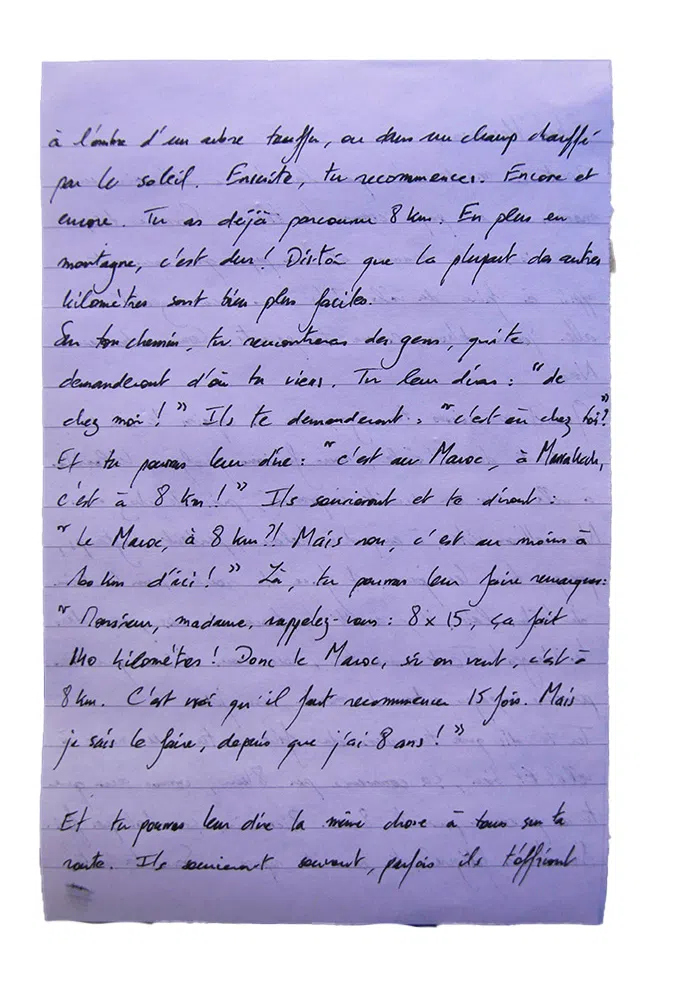 à l'ombre d'un arbre touffu, ou dans un champ chauffé
par le soleil. Ensuite, tu recommences. Encore et
encore. Tu as déjà parcouru 8 km. En plus en
montagne, c'est dur ! Dis-toi que la plupart des autres
kilomètres sont bien plus faciles.
Sur ton chemin, tu rencontreras des gens, qui te
demanderont d'où tu viens. Tu leur diras : "de
chez moi !" Ils te demanderont : "c'est où chez toi ?"
Et tu pourras leur dire : "c'est au Maroc, à Marrakech,
c'est à 8 km !" Ils souriront et te diront :
"Le Maroc, à 8 km ?! Mais non, c'est au moins à
100 km d'ici !" Là, tu pourras leur faire remarquer :
"Monsieur, madame, rappelez-vous : 8 x 15, ça fait
140 kilomètres ! Donc le Maroc, si on veut, c'est à
8 km. C'est vrai qu'il faut recommencer 15 fois. Mais
je sais le faire, depuis que j'ai 8 ans !"
Et tu pourras leur dire la même chose à tous sur ta
route. Ils souriront souvent, parfois ils t'offriront